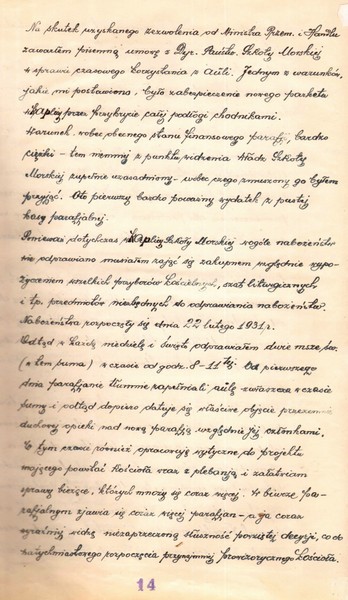 Na skutek uzyskanego zezwolenia od Ministra Przem. i Handlu
zawarłem pisemną umowę z Dyr. Państw. Szkoły Morskiej
w sprawie czasowego korzystania z Auli. Jednym z warunków,
jaki mi postawiono, było zabezpieczenie nowego parkietu
w kaplicy przez przykrycie całej podłogi chodnikami.
Warunek wobec obecnego stanu finansowego parafji, bardzo
ciężki – tem niemniej z punktu widzenia Władz Szkoły
Morskiej zupełnie uzasadniony – wobec czego zmuszony go byłem
przyjąć. Oto pierwszy bardzo poważny wydatek z pustej
kasy parafjalnej.
Ponieważ dotychczas w kaplicy Szkoły Morskiej wogóle nabożeństw
nie odprawiano musiałem zająć się zakupnem względnie wypo-
życzeniem wszelkich przyborów kościelnych, szat liturgicznych
i t.p. przedmiotów niezbędnych do odprawiania nabożeństw.
Nabożeństwa rozpoczęły się dnia 22 lutego 1931 r.
Odtąd w każdą niedzielę i święta odprawiałem dwie msze św.
(w tem suma) w czasie od godz. 8–11tej. Od pierwszego
dnia parafjanie tłumnie zapełniali aulę zwłaszcza w czasie
sumy i odtąd dopiero datuje się właściwe objęcie przezemnie
duchowej opieki nad nową parafją względnie jej członkami.
W tym czasie również opracowuję wytyczne do projektu
mającego powstać Kościoła wraz z plebanją i załatwiam
sprawy bieżące, których mnoży się coraz więcej. W biurze pa-
rafjalnym zjawia się coraz więcej parafjan – a ja coraz
wyraźniej widzę niezaprzeczoną słuszność powziętej decyzji, co do
natychmiastowego rozpoczęcia przynajmniej prowizorycznego Kościoła.
14